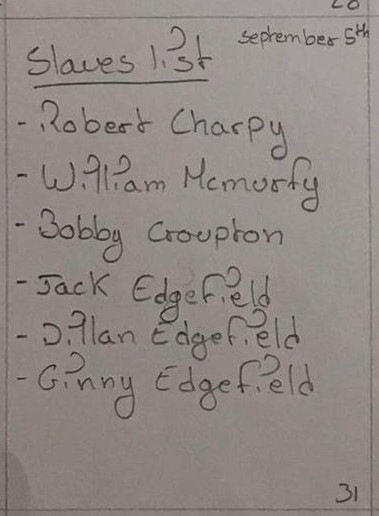 September 5th
Slaves list
- Robert Charpy
- William Mcmurfy
- Bobby Croupton
- Jack Edgefield
- Dillan Edgefield
- Ginny Edgefield
31